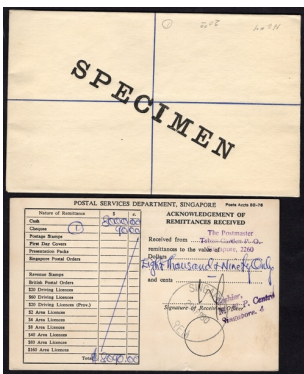 SPECIMEN
POSTAL SERVICES DEPARTMENT, SINGAPORE Posts Accts 80-78
Nature of Remittance $ c.
Cash 8000 00
Cheques 1 90 00
Postage Stamps
First Day Covers
Presentation Packs
Singapore Postal Orders
Revenue Stamps
British Postal Orders
$20 Driving Licences
$60 Driving Licences
$20 Driving Licences (Prov.)
$2 Area Licences
$4 Area Licences
$8 Area Licences
$40 Area Licences
$80 Area Licences
$160 Area Licences
Total 8090.00
ACKNOWLEDGEMENT OF
REMITTANCES RECEIVED
The Postmaster
Received from Telok Garden P. O.
remittances to the value of Singapore, 2260
Dollars
Eight Thousand & Ninety Only
and cents
Signature of
Cashier,
G. P. Central
Singapore.